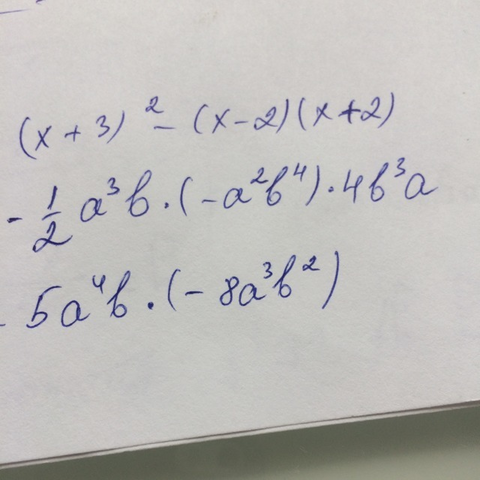 (x + 3)² - (x - 2)(x + 2)
- 1/2 a³b · (-a²b⁴) · 4b³a
- 5a⁴b · (-8a³b²)